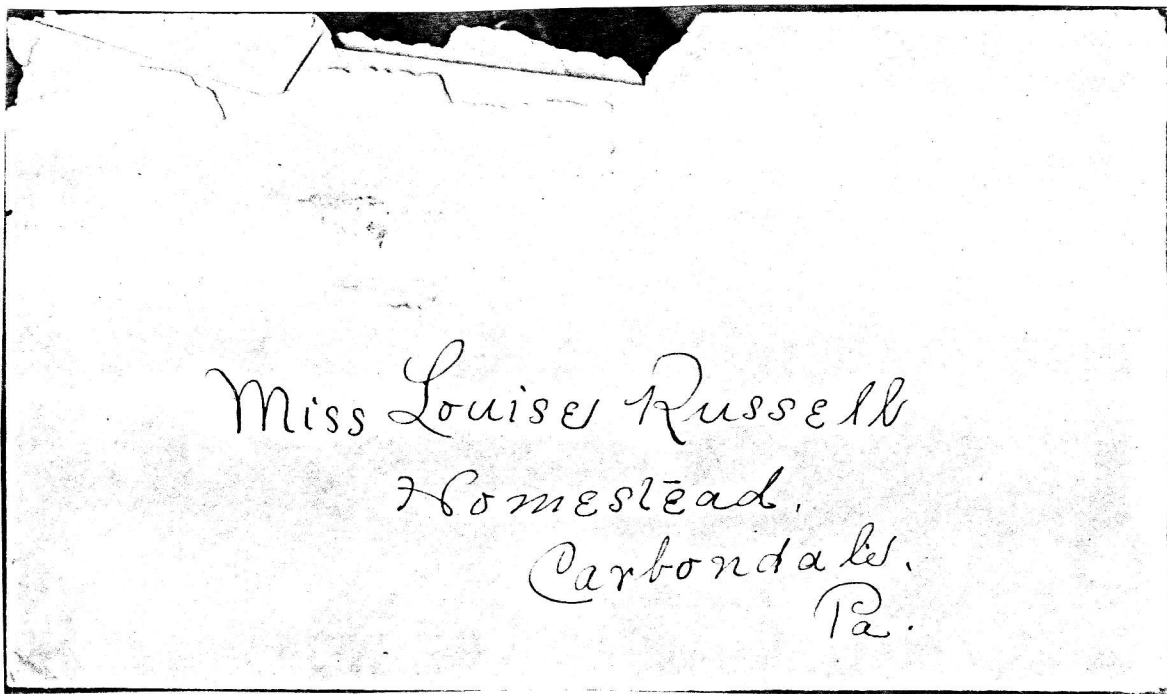 Miss Louise Russell
Homestead.
Carbondale.
Pa.